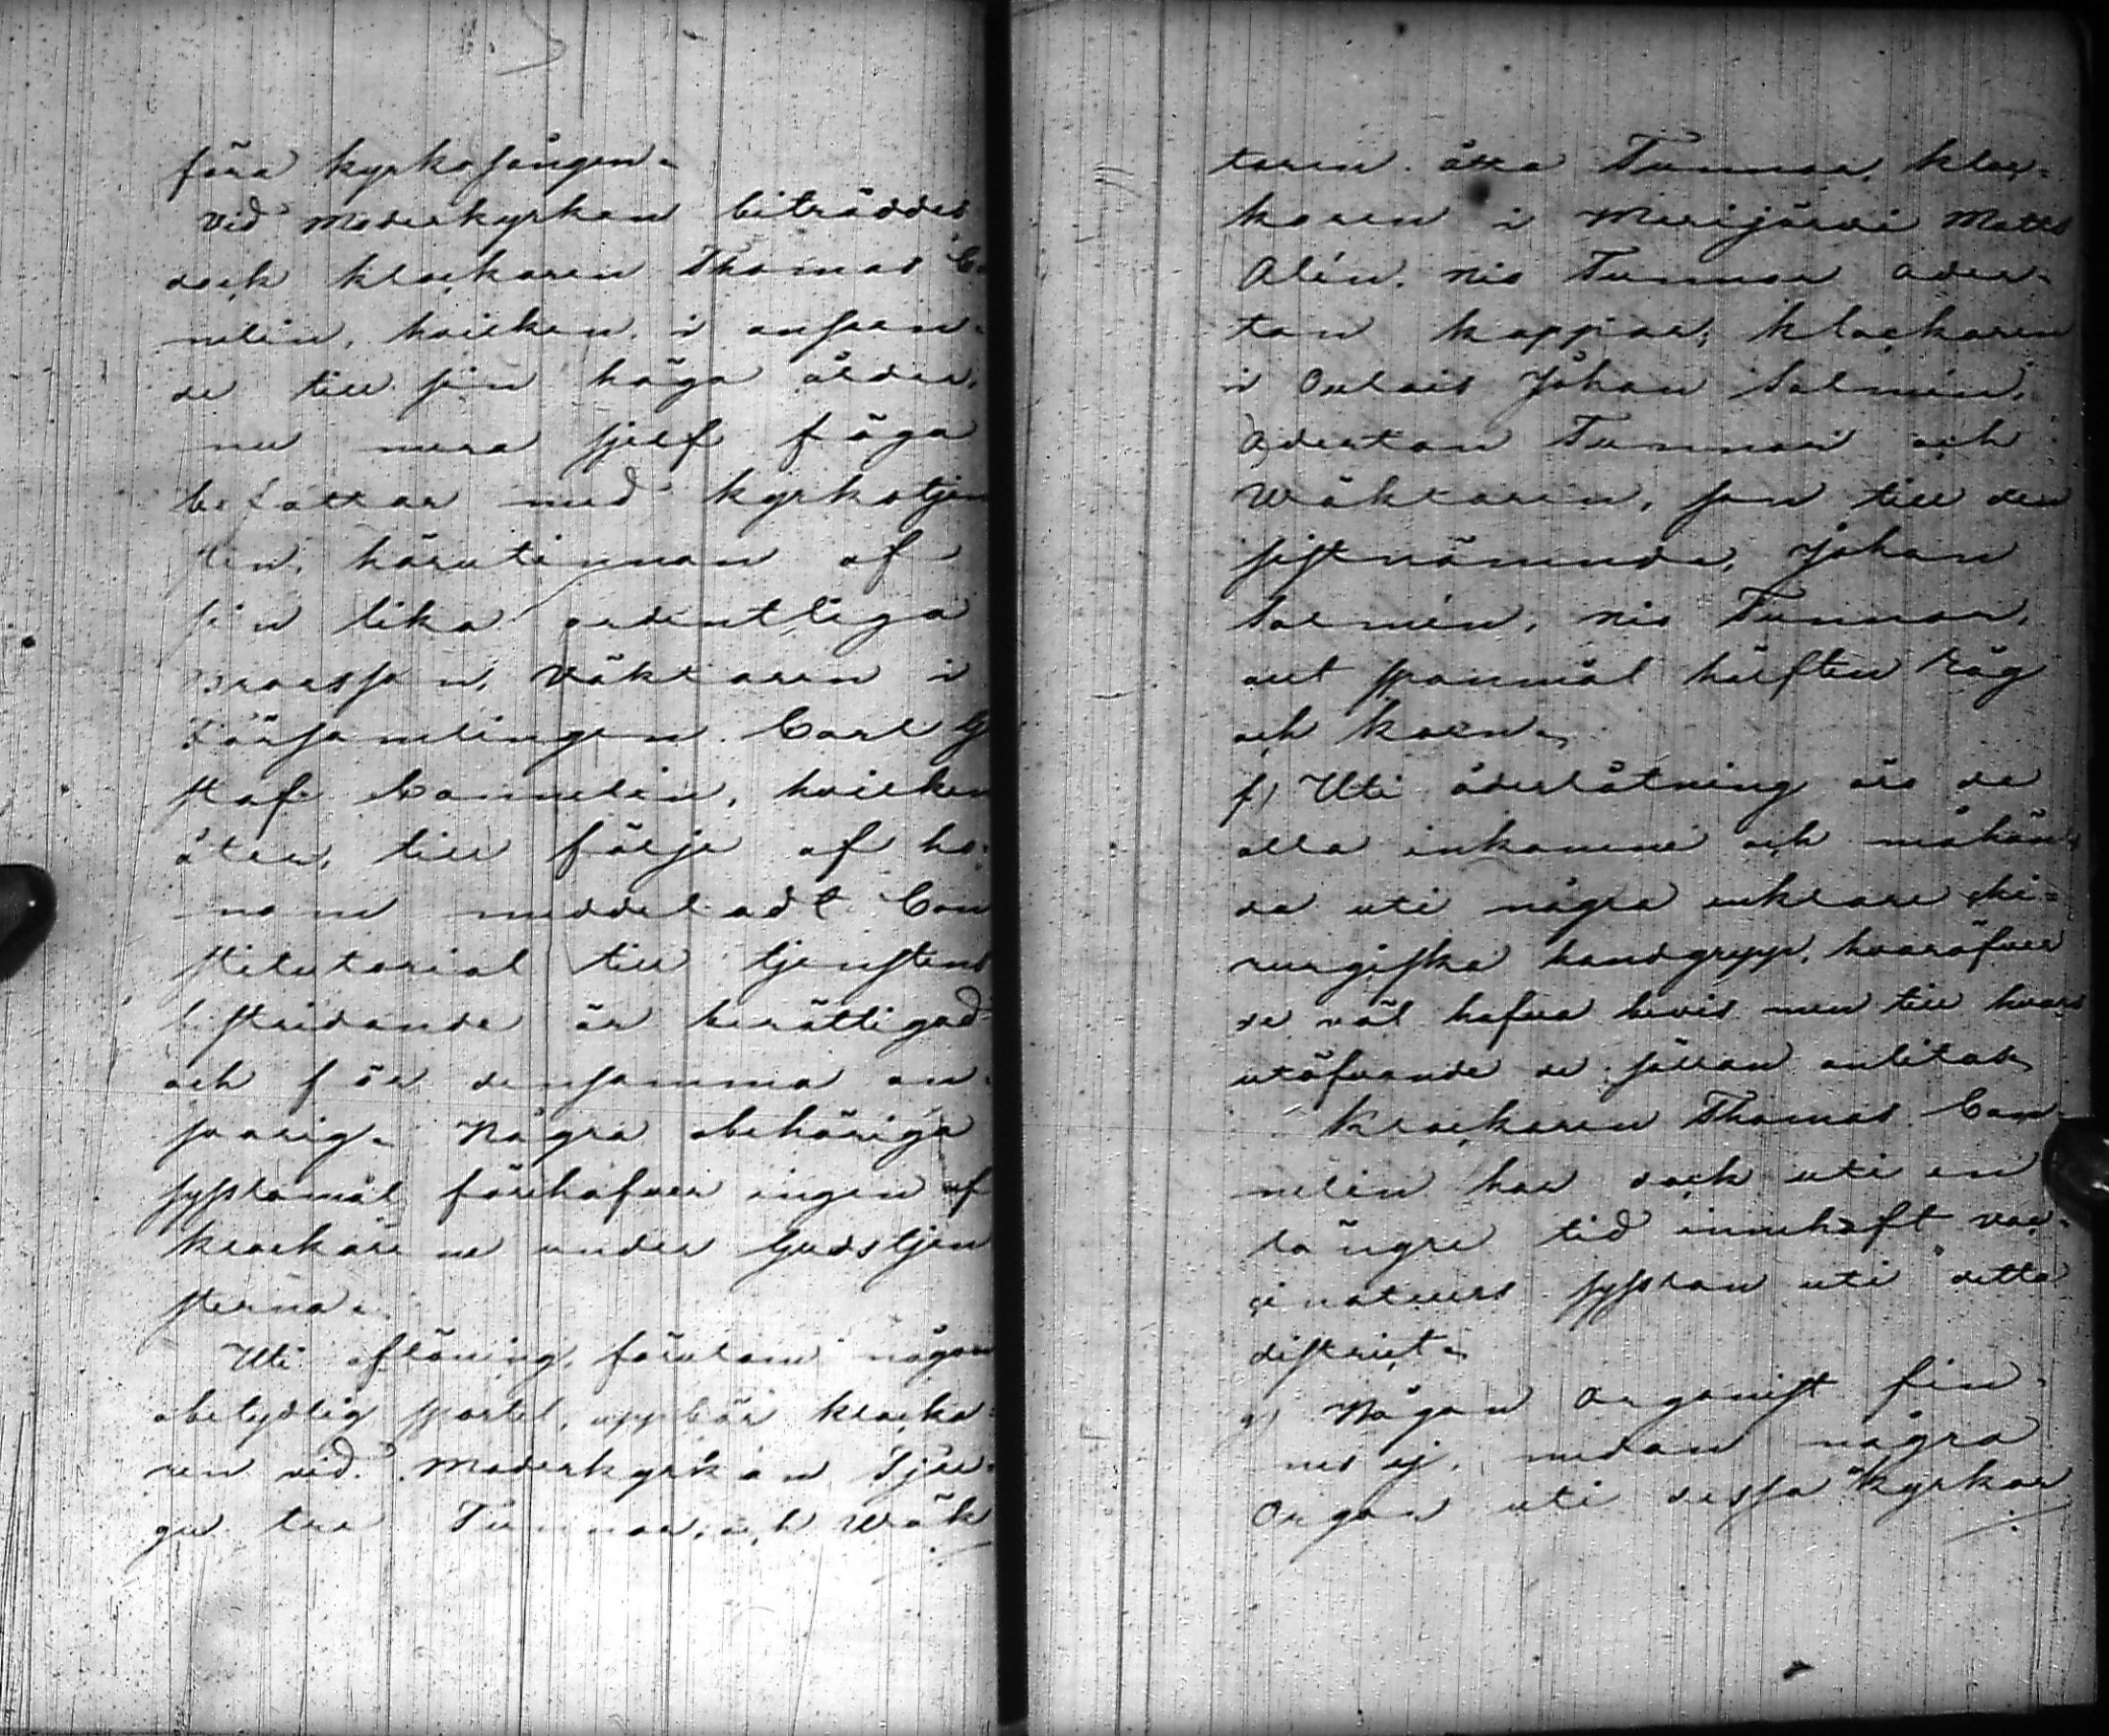 föra kyrkosången.
Vid Moderkyrkan biträddes
dock klockaren Thomas C
nelin, hvilken, i anseen-
de till sin höga ålder,
nu mera sjelf föga
befattar med kyrkotjen
sten, härutinnan af
sin lika ordentliga
Brorsson, Väktaren i
Församlingen Carl G
staf Connelin, hvilken
åter, till följe af ho-
nom meddeladt Con
stitutorial till tjenstens
bestridande är berättigad
och för densamma an-
svarig. Några obehöriga
sysslomål förehafver ingen af
klockarene under Gudstjen
sterna.
Uti aflöning, förutom någon
obetydlig sportel, uppbär klocka-
ren vid Moderkyrkan Tjue-
gu tre Tunnor, och Wäk
taren åtta Tunnor, kloc-
karen i Merijärvi Matts
Alén, nio Tunnor ader-
ton kappar; klockaren
i Oulais Johan Salmén,
Aderton Tunnor och
Wäktaren, son till den
sistnämnde, Johan
Salmén, nio Tunnor,
allt spanmål hälften Råg
och Korn.
f) Uti åderlåtning äro de
alla inkomne och måhän-
da uti några enklare chi-
rurgiska handgrepp, hvaröfver
de väl hafva bevis men till hvars
utöfvande de sällan anlitats
Klockaren Thomas Con-
nelin har dock uti en
längre tid innehaft vac-
cinateurs sysslan uti detta
district.
g) Någon Organist fin-
nes ej, medan några
Organ uti dessa kyrkor